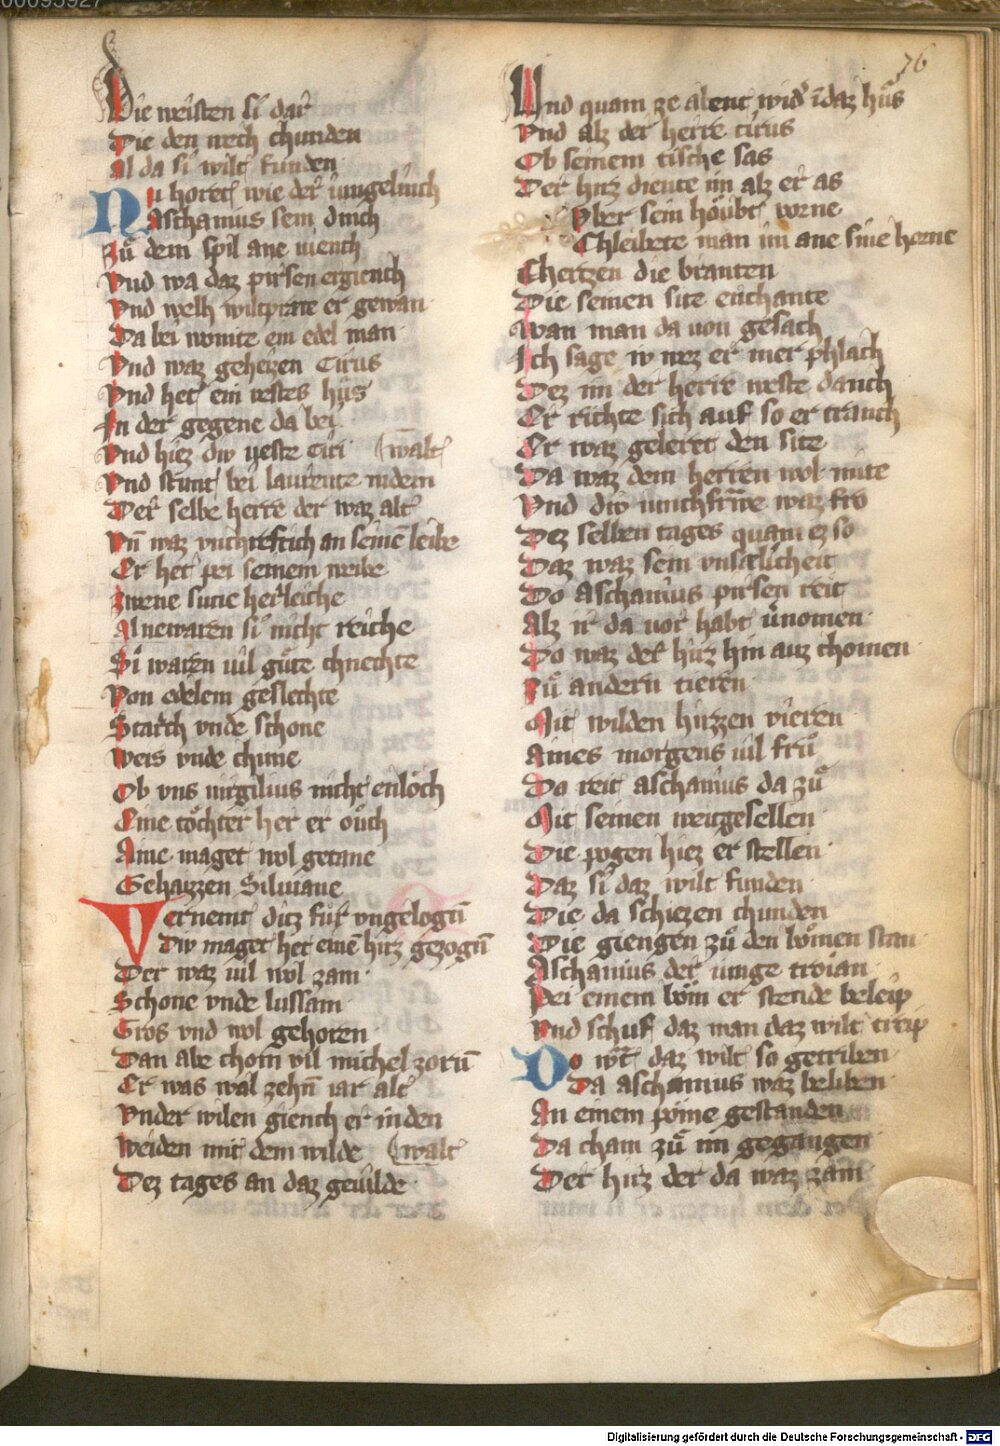 00095927
76
Die weisten si dar
Die den nech chunden
Al da si wilt funden
Nu horet wie der iungelinch
Aschanius sein dinch
Zuͦ dem spil ane viench
Vnd wa daz pirsen ergiench
Vnd welh wiltprate er gewan
Da bei wonite ein edel man
Vnd waz geheizen Cirus
Vnd het ein vestes hus
In der gegene da bei
Vnd hiez diw veste Ciri (walt
Vnd stunt bei laurente in dem
Der selbe herre der waz alt
Vn̄ waz vnchreftich an seinē leibe
Er het pei seinem weibe
Zwene sune herleiche
Alnewaren si nicht reiche
Si waren uil guͦte chnechte
Von edelem geslechte
Starch vnde schone
Weis vnde chune
Ob vns uirgilius nicht enloch
Eine tochter het er ouch
Aine maget wol getane
Gehaizzen Siluiane
Vernemt ditz fur vngelogn̄
Diw maget het einē hirz gezogn̄
Der waz uil wol zam
Schone vnde lussam
Gros vnd wol gehoren
Dan abe chom vil michel zorn̄
Er was wal zehn̄ iar alt
Vnder wilen giench er in den
Weiden mit dem wilde (walt
Dez tages an daz geuilde
Vnd quam ze abent wid' ī daz hus
Vnd alz der herre tirus
Ob seinem tische sas
Der hirz diente im alz er as
Vber sein houbt vorne
Chleibete man im ane sine horne
Chertzen die branten
Die seinen site erchante
Wan man da von gesach
Ich sage iv wez er mer phlach
Dez im der herre weste danch
Er richte sich auf so er tranch
Er waz geleret den site
Da waz dem herren wol mite
Vnd diw iunchfrowe waz fro
Dez selben tages quam ez so
Daz waz sein vnsælicheit
Do Aschanius pirsen reit
Alz ir da vor habt ūnomen
Do waz der hirz hin auz chomen
Zuͦ andern tieren
Mit wilden hirzzen vieren
Aines morgens uil fruͦ
Do reit aschanius da zuͦ
Mit seinen weitgesellen
Die pogen hiez er stellen
Daz si daz wilt funden
Die da schiezen chunden
Die giengen zuͦ den boͮmen stan
Aschanius der iunge troian
Bei einem boͮm er stende beleip
Vnd schuf daz man daz wilt treip
Do wt̄ daz wilt so getriben
Da aschanius waz beliben
An einem pome gestanden
Da cham zuͦ im gegangen
Der hirz der da waz zam
Digitalisierung gefördert durch die Deutsche Forschungsgemeinschaft - DFG